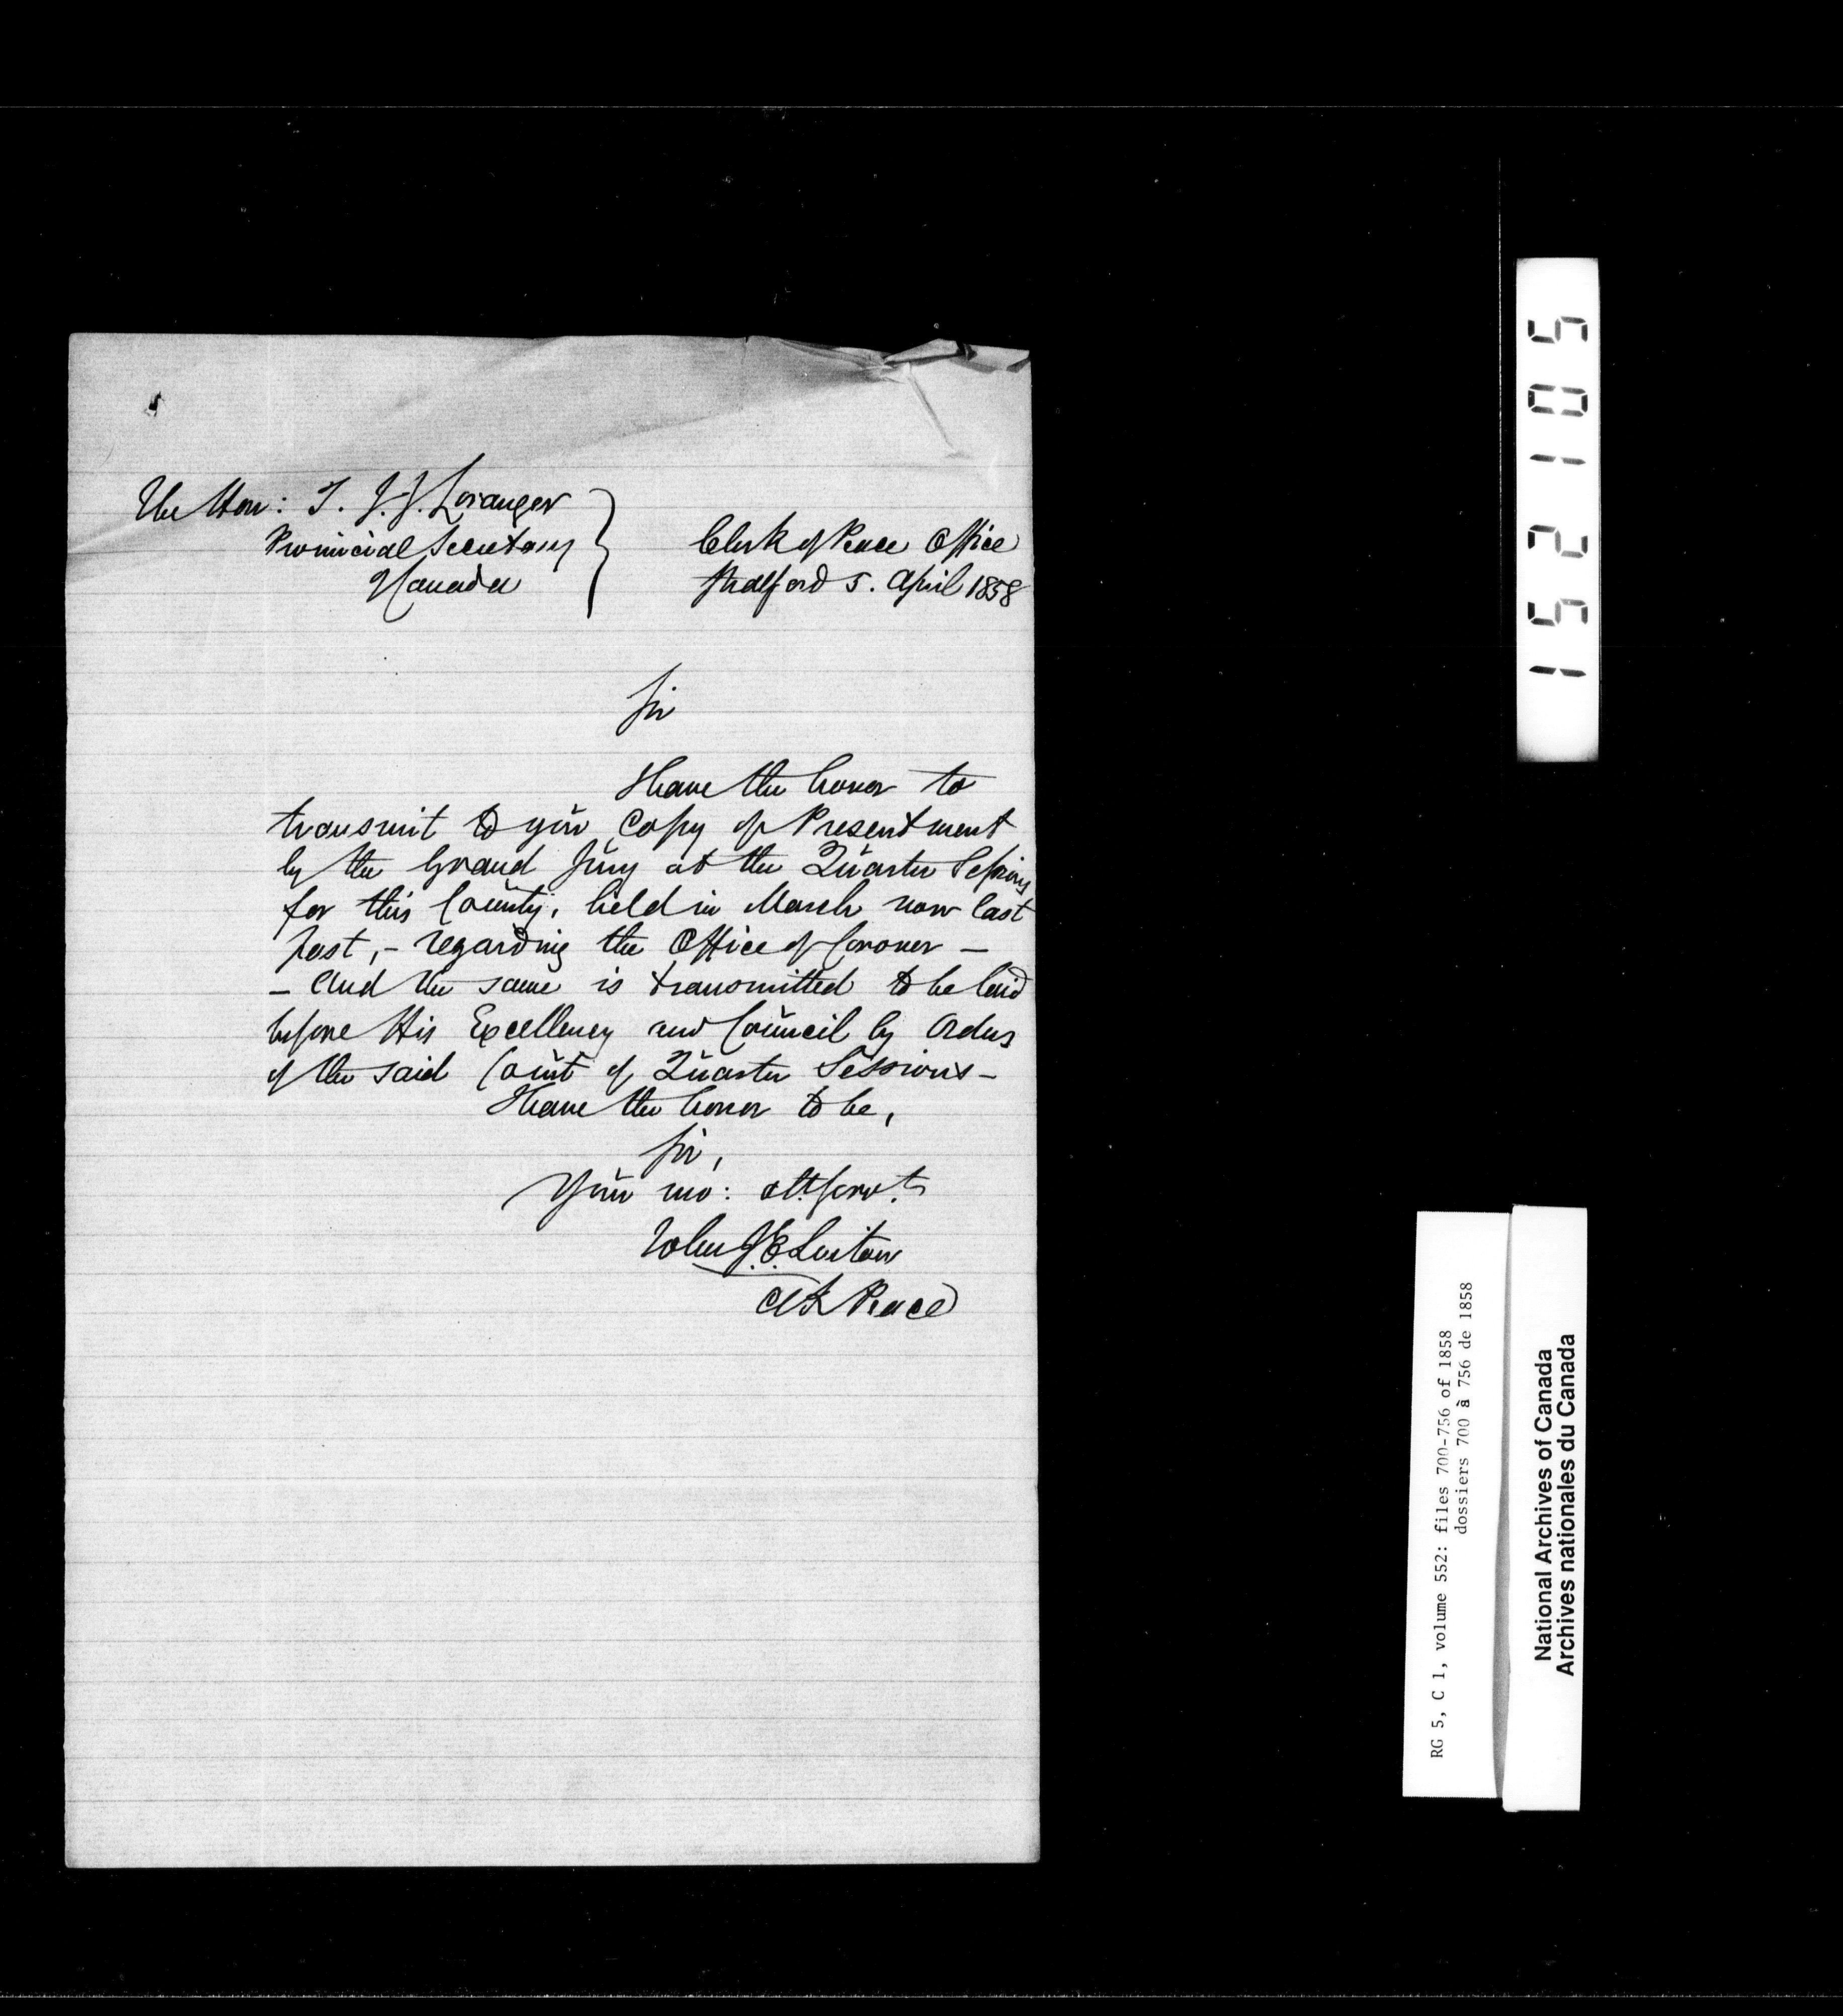 The Hon: T. J. J. Loranger
Provincial Secretary
Canada
Clerk of Peace Office
Stratford 5. April 1858
Sir
I have the honor to
transmit to you Copy of Presentment
by the Grand Jury at the Quarter Sessions
for this County, held in March now last
past, - regarding the Office of Coroner -
- And the same is transmitted to be laid
before His Excellency and Council by Order
of the said Court of Quarter Sessions -
I have the honor to be,
Sir,
Your mo: obt. servt.
John J. E. Linton
Clk Peace
152105
RG 5, C 1, volume 552: files 700-756 of 1858
dossiers 700 à 756 de 1858
National Archives of Canada
Archives nationales du Canada